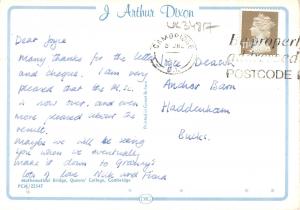 J Arthur Dixon
UK34817
CAMBRIDGE
Be properly
addressed
POSTCODE
Dear Joyce
Many thanks for the letter
and cheque. I am very
pleased that the
is now over, and even
more pleased about the
result.
Maybe we will be seeing
you when we eventually
make it down to Granny's
lots of love Nick and Fiona
Joyce Deacon
Anchor Barn
Haddenham
Bucks.
Mathematical Bridge, Queens' College, Cambridge